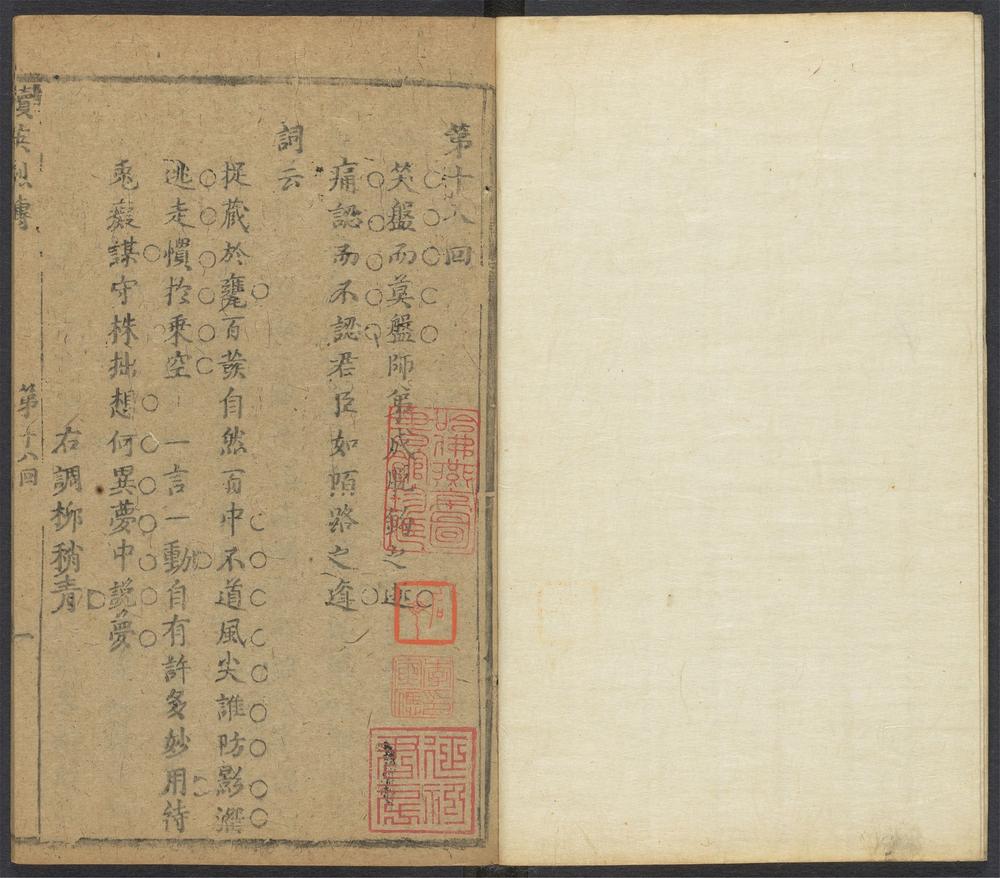 第十八回
哭盤而莫盤師弟成 之
痛認而不認君臣如陌路之逢
詞云
捉藏於甕百發自然百中不道風尖誰防影漏
逃走慣扵乗空 一言一動自有許多妙用待
兎癡謀守株拙想何異夢中説夢
右調柳稍青
續英烈傳
第十八回
一
哈佛燕京圖書館